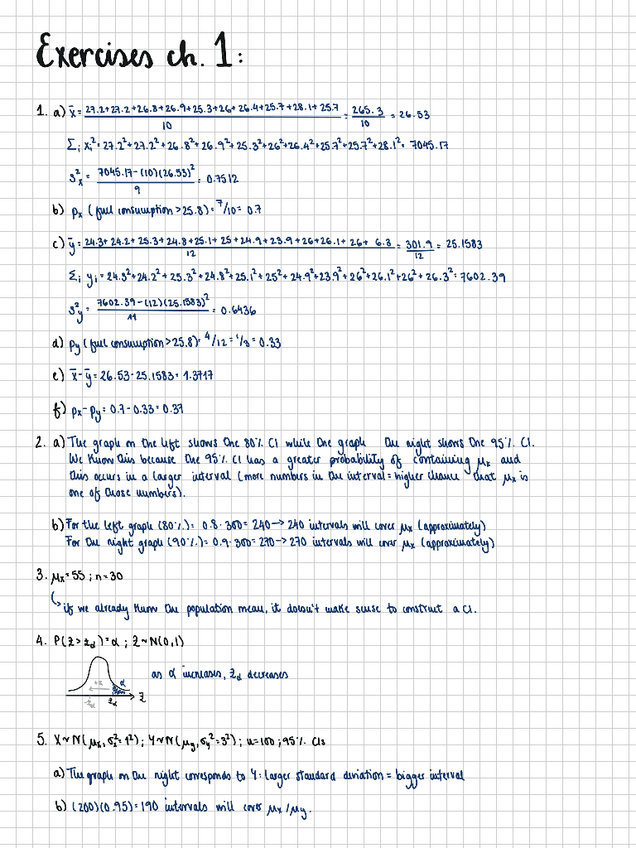 Exercises ch. 1:
1. a) x̄ = 27.2+27.2+26.8+26.9+25.3+26+26.4+25.7+28.1+25.7 / 10 = 265.3 / 10 = 26.53
Σᵢ xᵢ² = 27.2²+27.2²+26.8²+26.9²+25.3²+26²+26.4²+25.7²+25.7²+28.1² = 7045.17
s²ₓ = 7045.17-(10)(26.53)² / 9 = 0.7512
b) pₓ (fuel consumption > 25.8) = 7/10 = 0.7
c) ȳ = 24.3+24.2+25.3+24.8+25.1+25+24.9+23.9+26+26.1+26+ 6.3 / 12 = 301.9 / 12 = 25.1583
Σᵢ yᵢ = 24.3²+24.2²+25.3²+24.8²+25.1²+25²+24.9²+23.9²+26²+26.1²+26²+26.3² = 7602.39
s²y = 7602.39-(12)(25.1583)² / 11 = 0.6436
d) py (fuel consumption > 25.8) = 4/12 = 1/3 = 0.33
e) x̄-ȳ = 26.53-25.1583 = 1.3717
f) pₓ-py = 0.7-0.33 = 0.37
2. a) The graph on the left shows the 80% CI while the graph the right shows the 95% CI.
We know this because the 95% CI has a greater probability of containing μₓ and
this occurs in a larger interval (more numbers in the interval = higher chance that μₓ is
one of those numbers).
b) For the left graph (80%) = 0.8·300 = 240 → 240 intervals will cover μₓ (approximately)
For the right graph (90%) = 0.9·300 = 270 → 270 intervals will cover μₓ (approximately)
3. μₓ = 55 ; n = 30
↳ if we already know the population mean, it doesn't make sense to construct a CI.
4. P(Z > z_α) = α ; Z ~ N(0,1)
as α increases, z_α decreases
α
z_α
Z
5. X ~ N(μₓ, σₓ² = 1²) ; Y ~ N(μy, σy² = 3²) ; n = 100 ; 95% CIs
a) The graph on the right corresponds to Y: larger standard deviation = bigger interval
b) (200)(0.95) = 190 intervals will cover μₓ/μy.